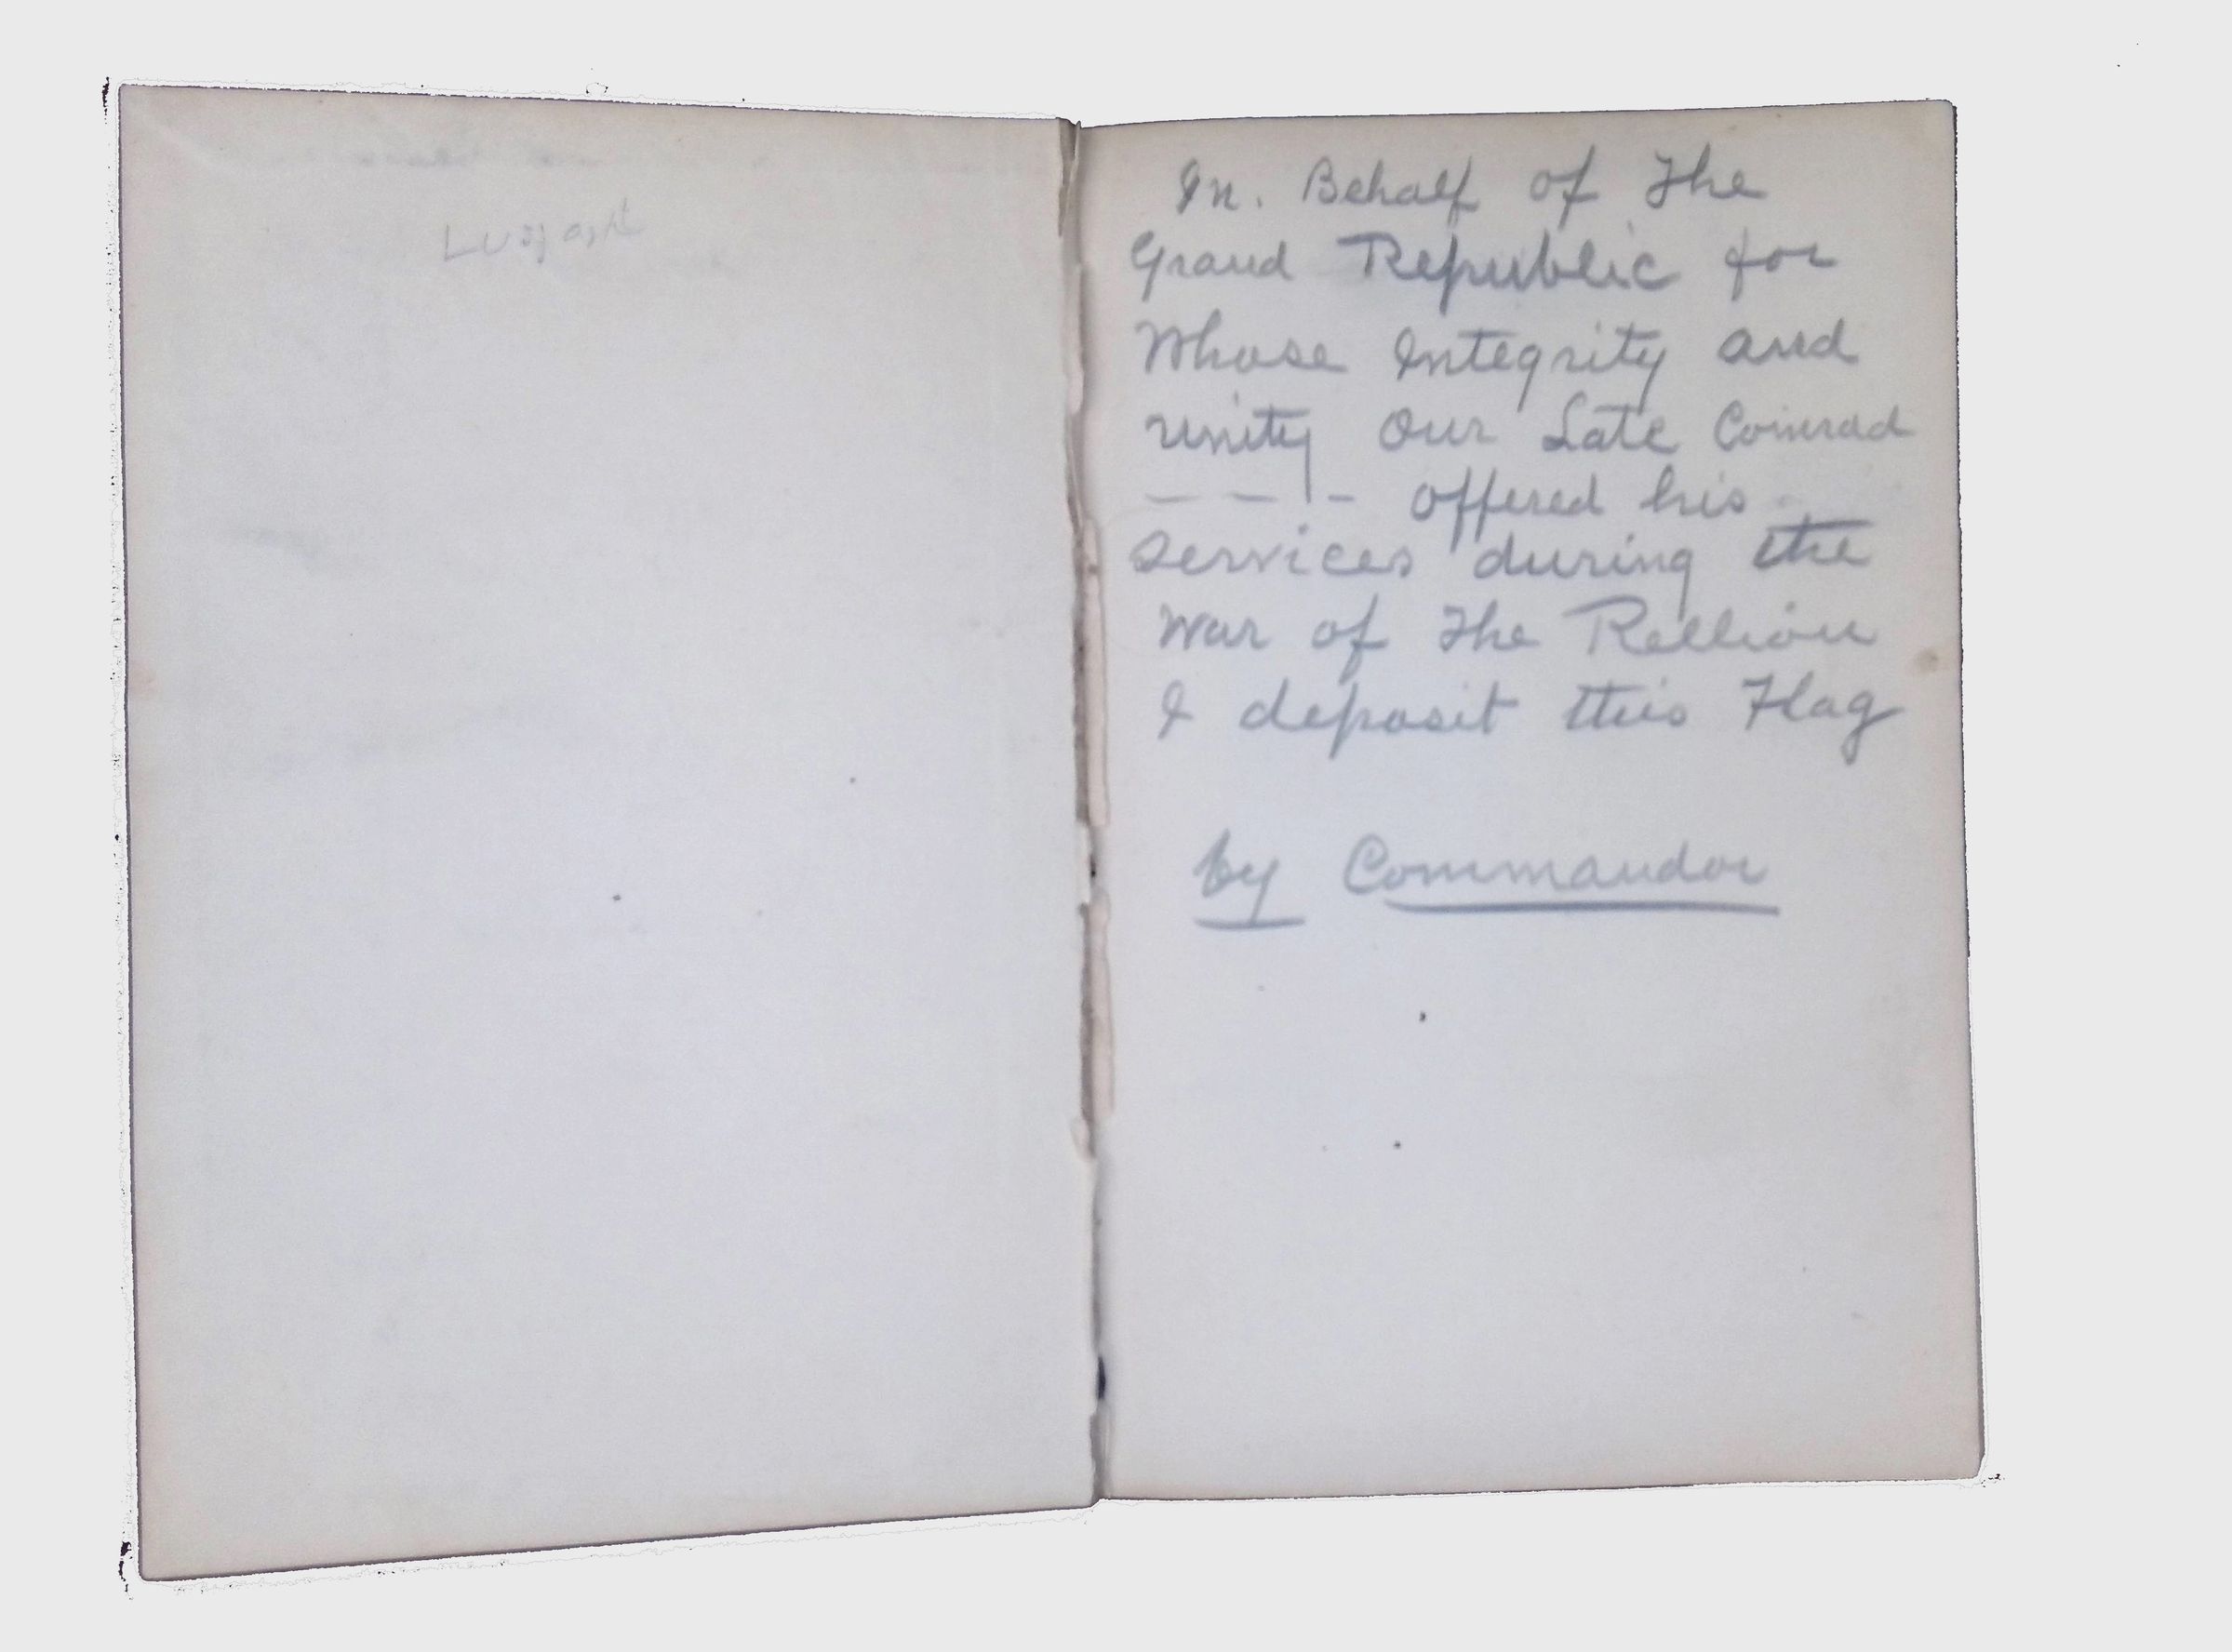 In. Behalf of The
Grand Republic for
Whose Integrity and
unity Our Late Comrad
— — - offered his
services during the
War of The Rellion
I deposit this Flag
by Commandor